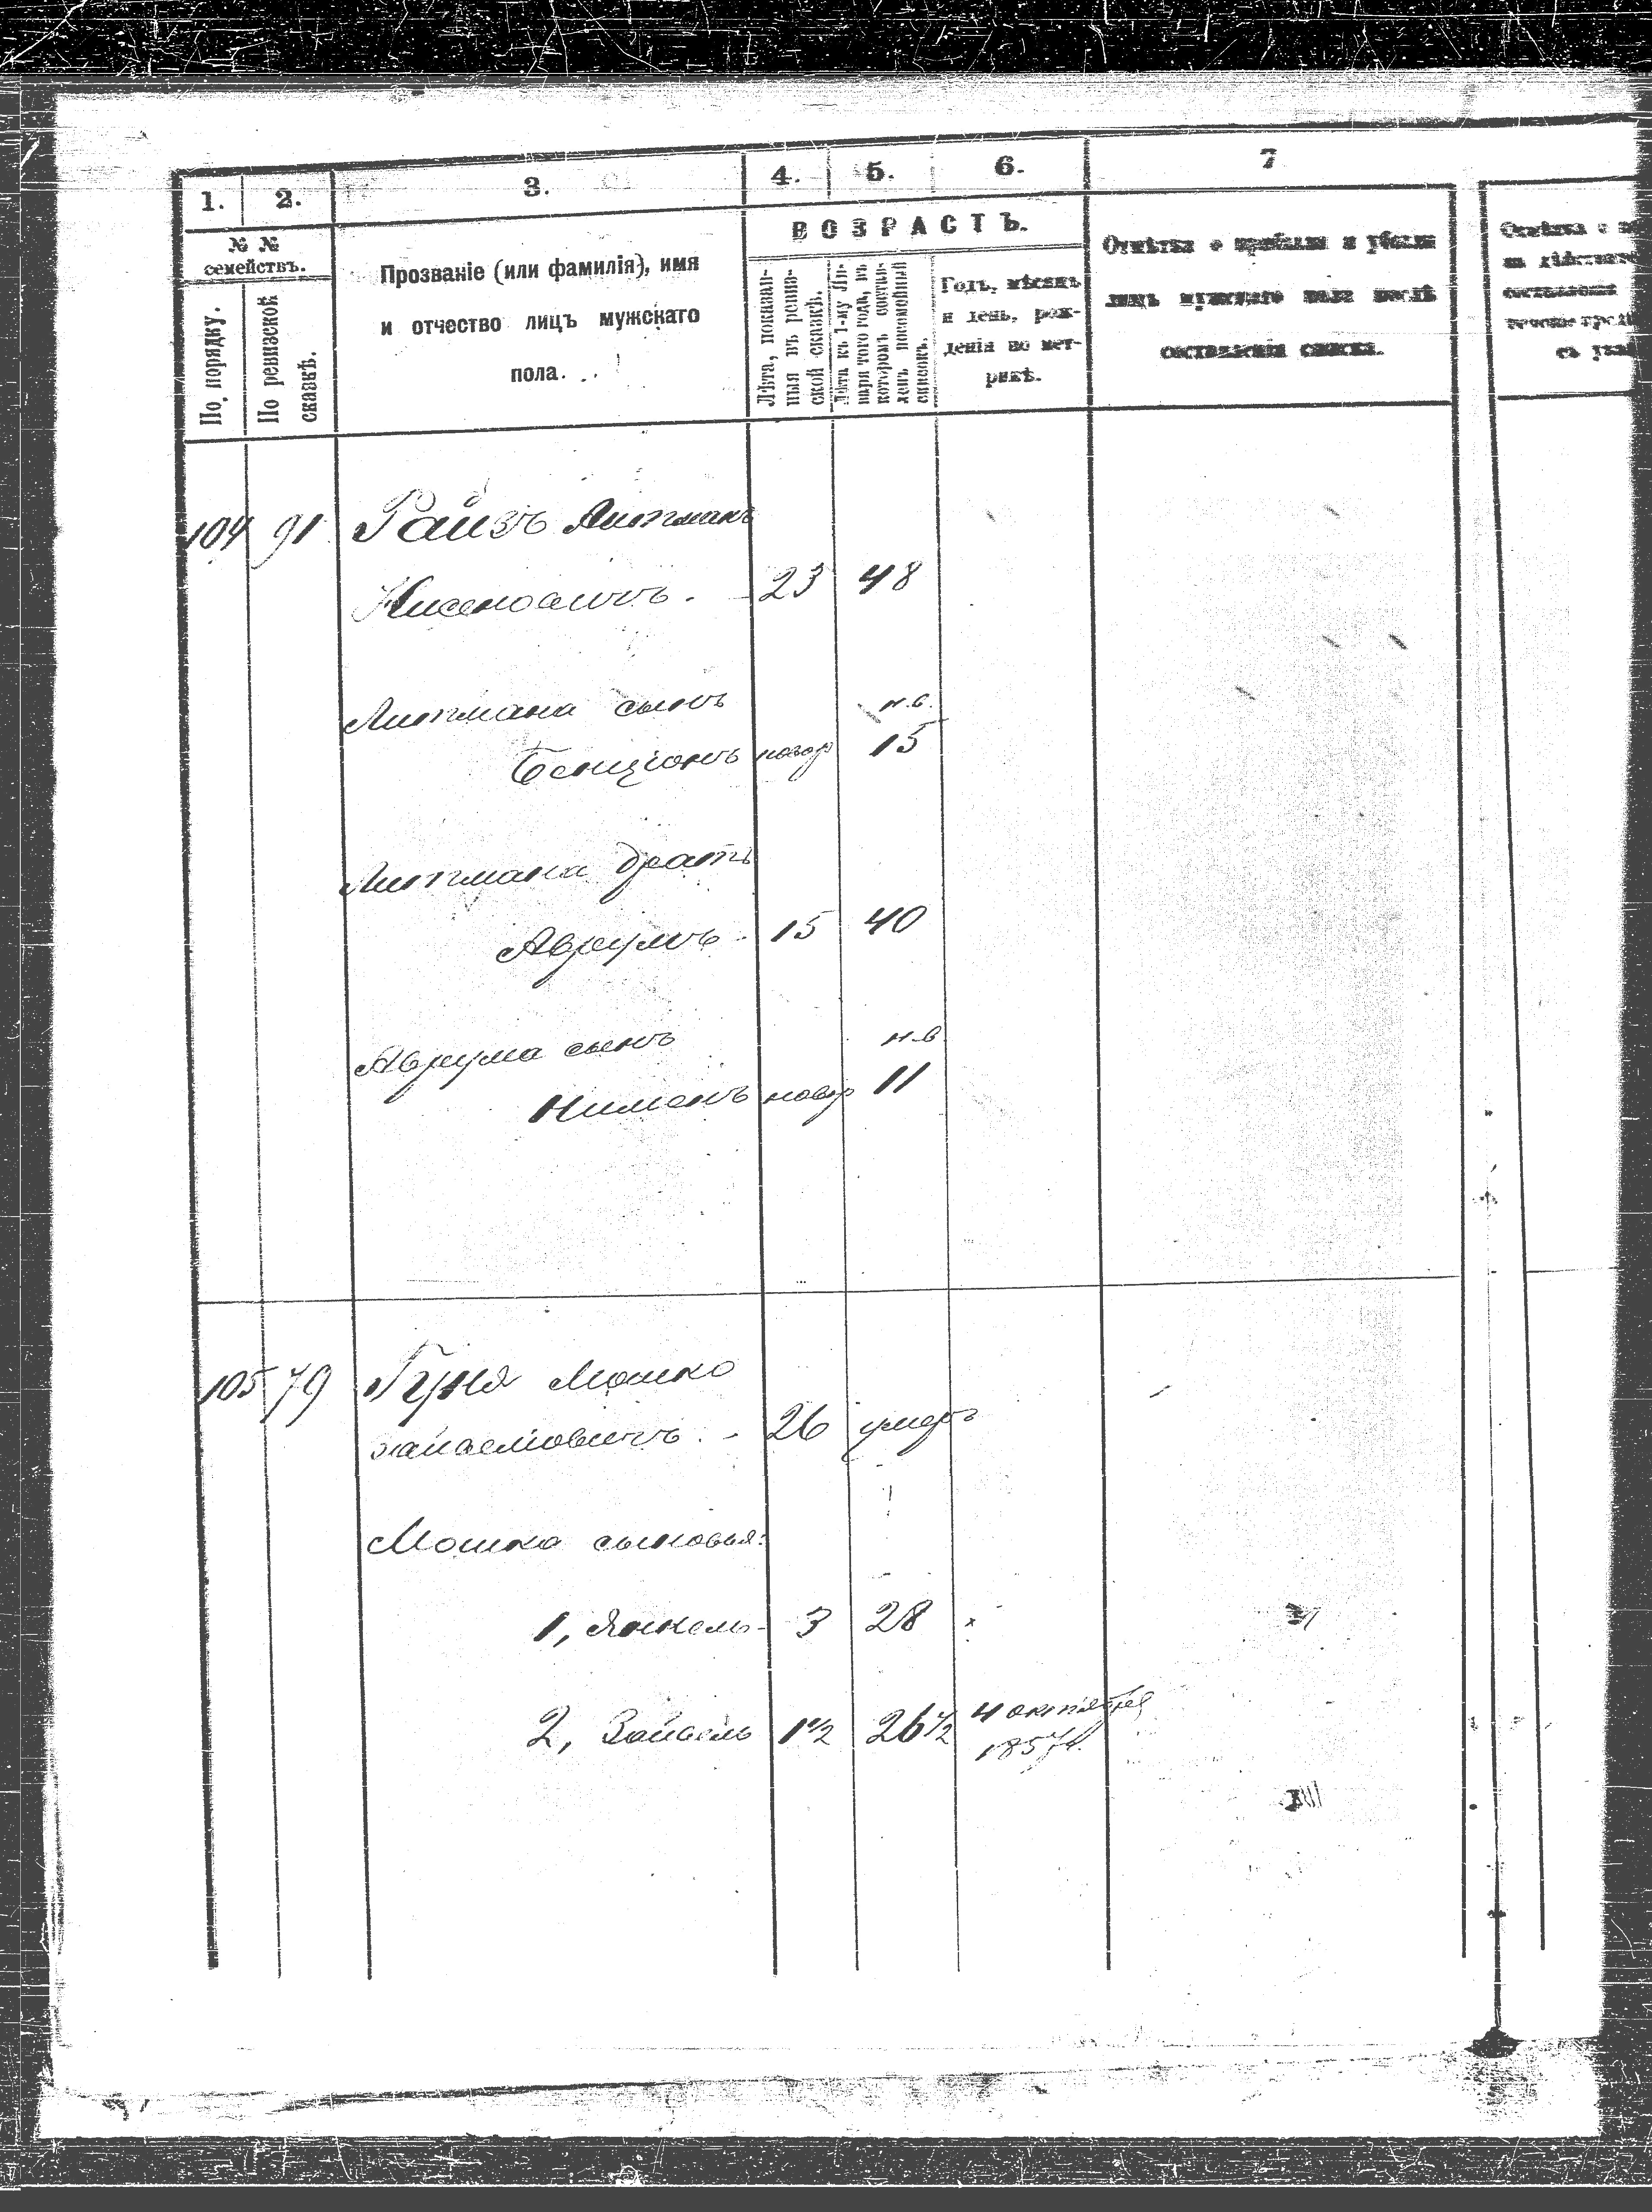 1. 2. 3. 4. 5. 6. 7
№ № семействъ.
По порядку.
По ревизской сказкѣ.
Прозваніе (или фамилія), имя
и отчество лицъ мужскаго
пола.
ВОЗРАСТЪ.
Лѣта, показан-
ныя въ ревиз-
ской сказкѣ.
Лѣта къ 1-му Ян-
варя того года, въ
которомъ состав-
ленъ посемейный
списокъ.
Годъ, мѣсяцъ
и день, рож-
денія по мет-
рикѣ.
Отмѣтка о прибыли и убыли
лицъ мужскаго пола послѣ
составленія списка.
104 91 Райзъ Липманъ
Нисеновичъ. 23 48
Липмана сынъ н.в.
Бенціонъ новор 15
Липмана братъ
Аврумъ. 15 40
Аврума сынъ н.в
новор 11
105 79 Гуня Мошко
26 умеръ
Мошка сыновья:
1, Янкель 3 28
2, Зайвель 1 1/2 26 1/2 4 октября
1857г.